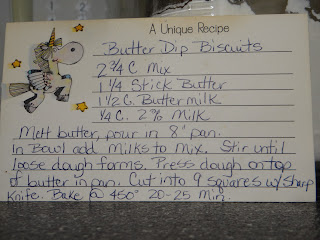 A Unique Recipe
Butter Dip Biscuits
2 3/4 C Mix
1 1/4 Stick Butter
1 1/2 C. Buttermilk
1/4 C. 2% Milk
Melt butter, pour in 8" pan.
In Bowl add milks to Mix. Stir until
loose dough forms. Press dough on top
of butter in pan. Cut into 9 squares w/sharp
Knife. Bake @ 450° 20-25 Min.